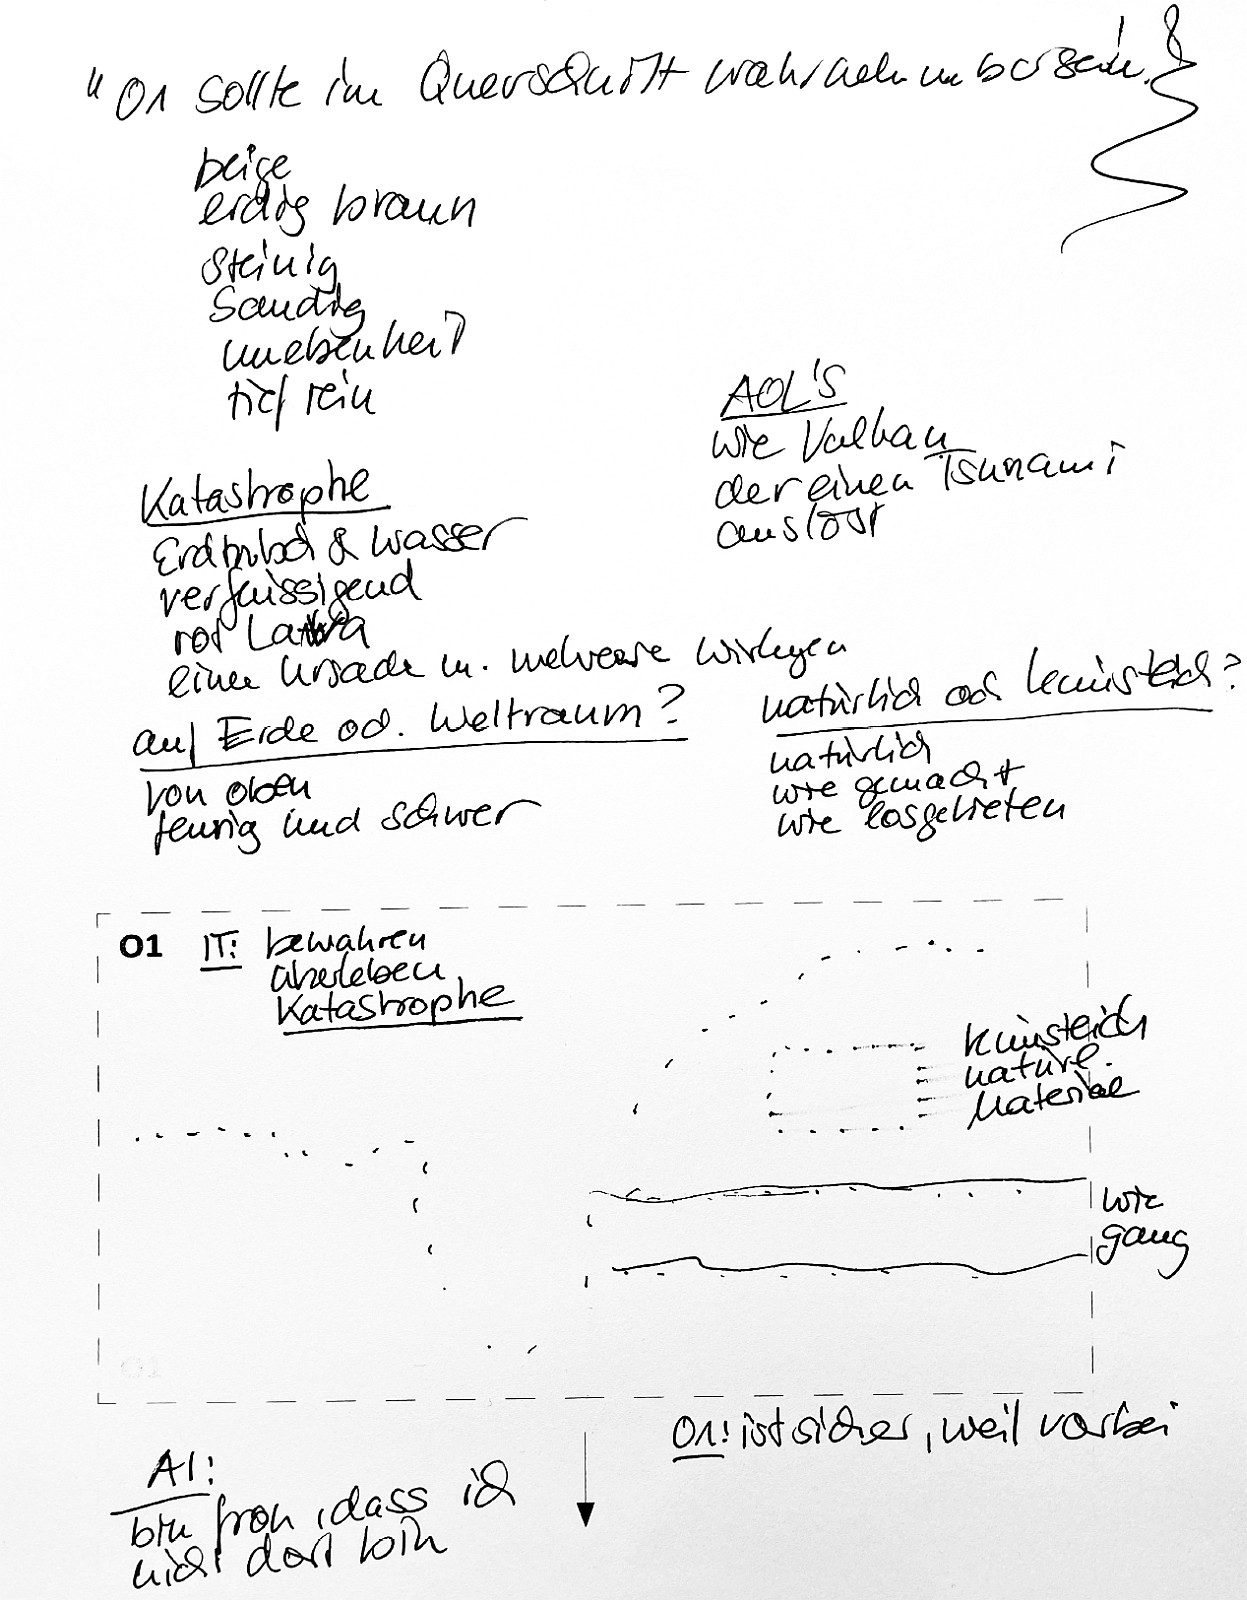 "O1 sollte im Querschnitt wahrnehmbar sein!
beige
erdig braun
steinig
sandig
unebenheit
tief rein
AOL'S
wie Vulkan
der einen Tsunami
auslöst
Katastrophe
& wasser
verflüssigend
rot Lava
eine Ursache m. mehrere
auf Erde od. Weltraum?
von oben
feurig und schwer
natürlich od künstlich?
natürlich
wie gemacht
wie losgetreten
O1 IT: bewahren
überleben
Katastrophe
künstlich
natürl.
Material
wie
gang
O1: ist sicher, weil vorbei
AI:
bin froh, dass ich
nicht dort bin